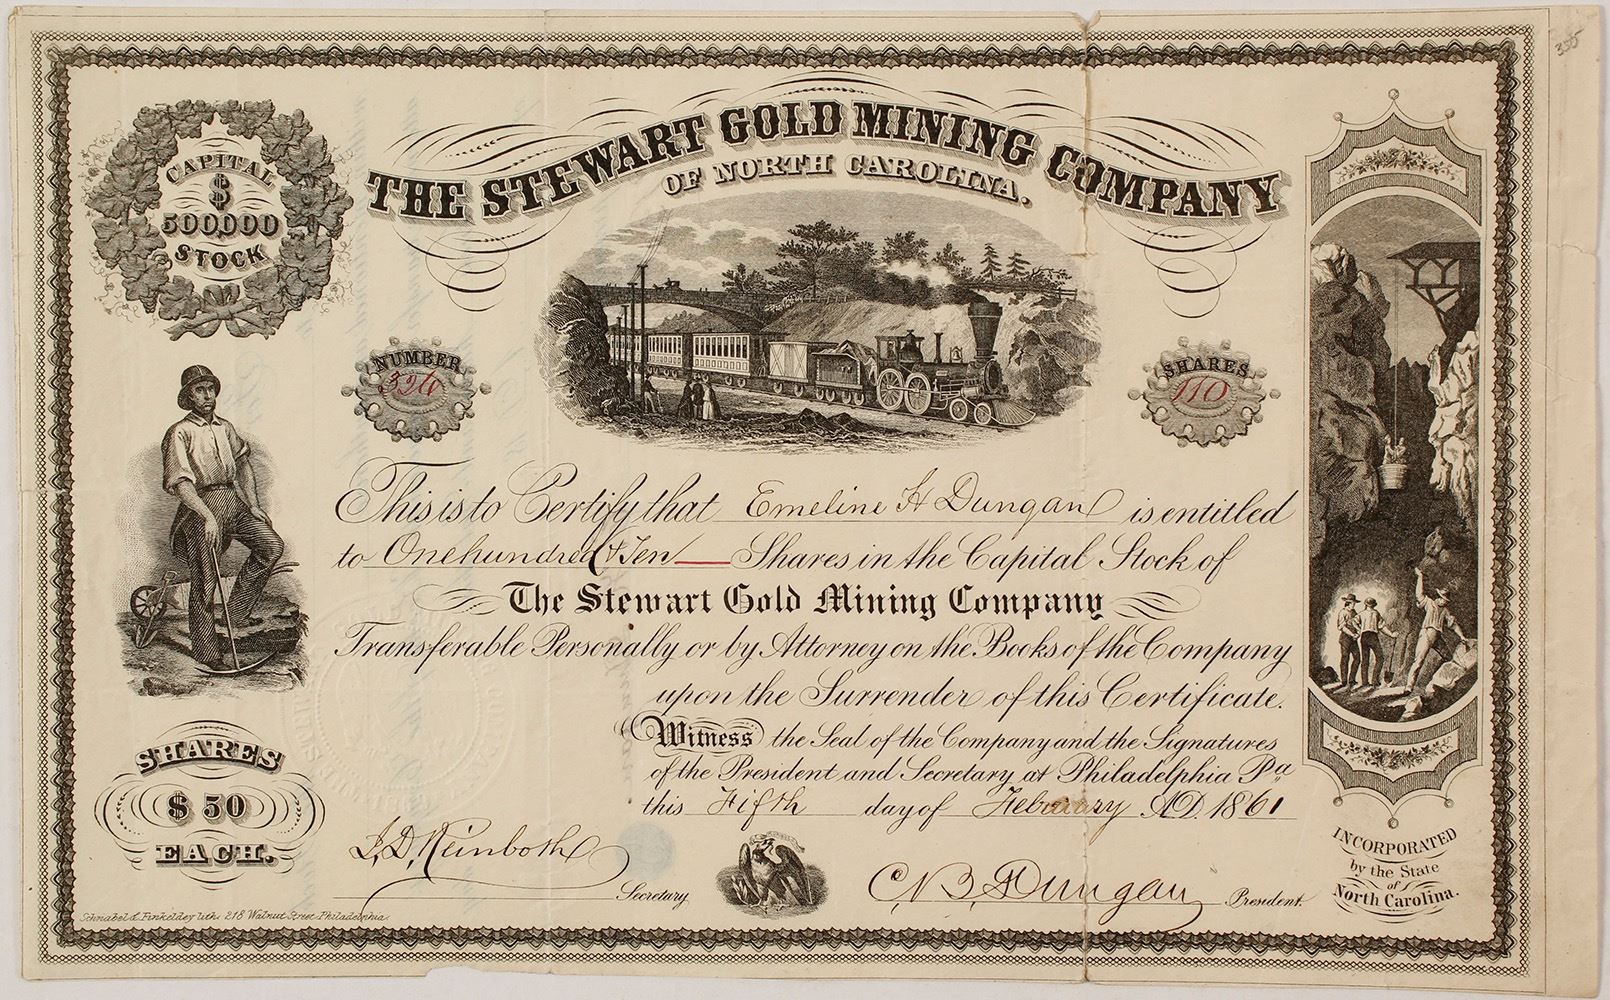 355
THE STEWART GOLD MINING COMPANY
OF NORTH CAROLINA.
CAPITAL
$
500,000
STOCK
NUMBER
326
SHARES
110
This is to Certify that Emeline H Dungan is entitled
to One hundred & Ten Shares in the Capital Stock of
The Stewart Gold Mining Company
Transferable Personally or by Attorney on the Books of the Company
upon the Surrender of this Certificate.
Witness the Seal of the Company and the Signatures
of the President and Secretary at Philadelphia Pa
this Fifth day of February A.D. 1861
SHARES
$ 50
EACH.
Secretary
C. B. Dungan President.
INCORPORATED
by the State
of
North Carolina.
Schnabel & Finkeldey lith. 218 Walnut Street Philadelphia.